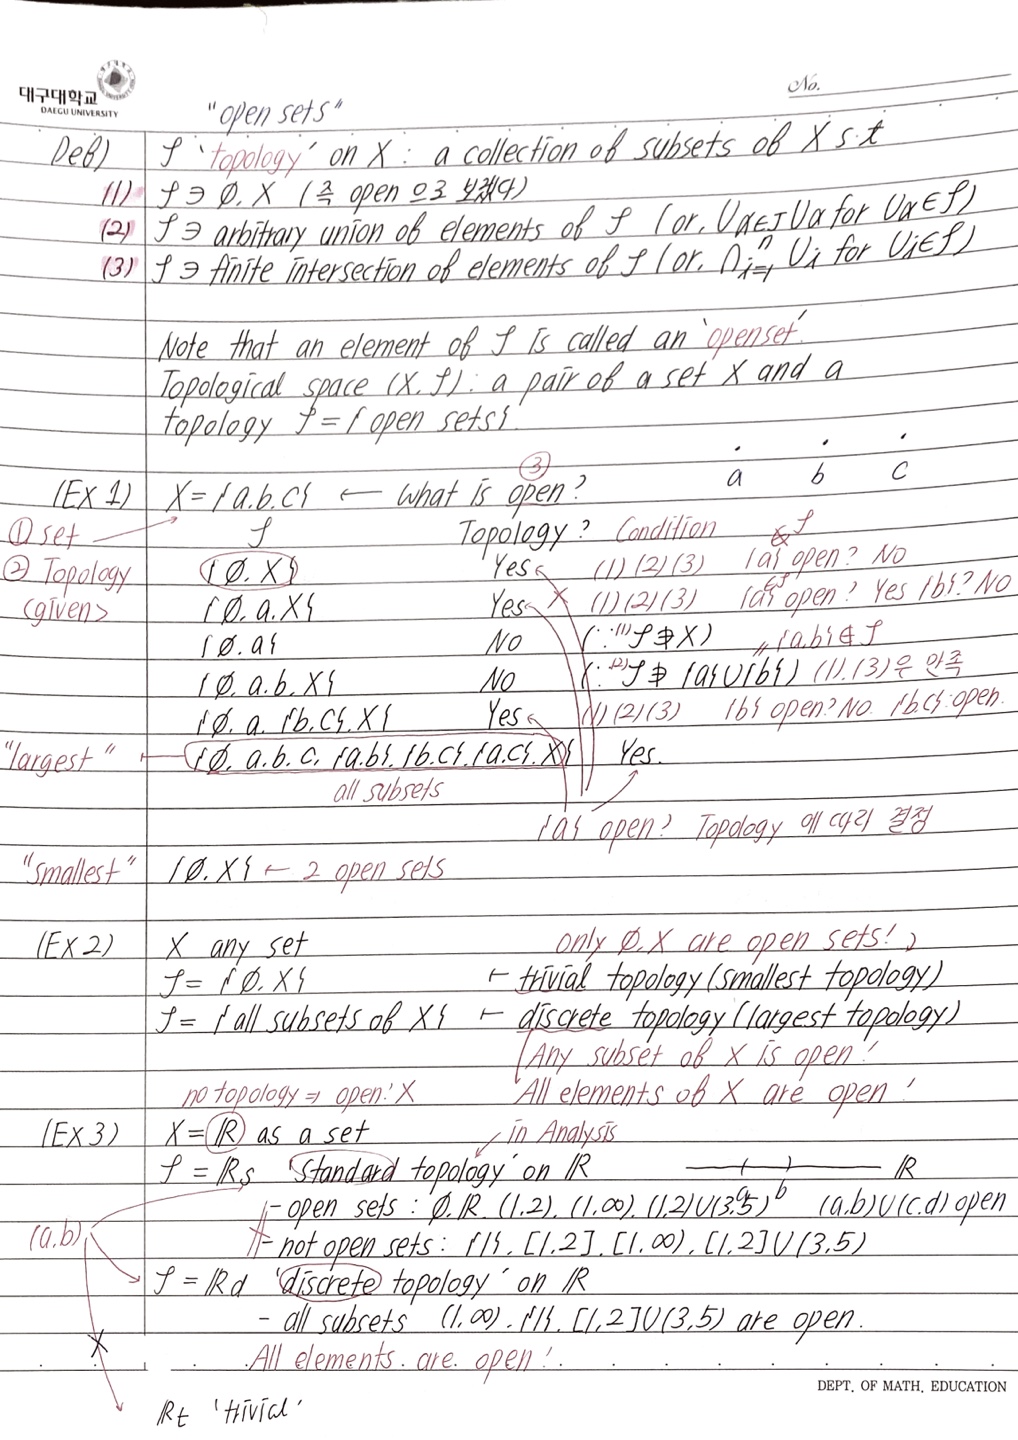 대구대학교
DAEGU UNIVERSITY
No.
"open sets"
Def) 𝒯 'topology' on X : a collection of subsets of X s.t
(1) 𝒯 ∋ ∅. X (즉 open 으로 보겠다)
(2) 𝒯 ∋ arbitrary union of elements of 𝒯 (or, ∪α∈J Uα for Uα∈𝒯)
(3) 𝒯 ∋ finite intersection of elements of 𝒯 (or, ∩ⁿi=1 Ui for Ui∈𝒯)
Note that an element of 𝒯 is called an 'openset'.
Topological space (X, 𝒯) : a pair of a set X and a
topology 𝒯 = { open sets }.
a b c
③
(Ex 1) X = {a.b.c} ← What is open?
① set 𝒯 Topology? Condition ∉ 𝒯
② Topology {∅. X} Yes (1) (2) (3) {a} open? No
<given> {∅. a. X} Yes (1) (2) (3) {a} open? Yes {b}? No
{∅. a} No (∵ (1) 𝒯 ∌ X) {a.b} ∉ 𝒯
{∅. a. b. X} No (∵ (2) 𝒯 ∌ {a}∪{b}) (1). (3)은 만족
{∅. a. {b.c}. X} Yes (1) (2) (3) {b} open? No. {b.c} : open.
"largest" {∅. a. b. c. {a.b}. {b.c}. {a.c}. X} Yes.
all subsets
{a} open? Topology 에 따라 결정
"smallest" {∅. X} ← 2 open sets
(Ex 2) X any set only ∅. X are open sets!
𝒯 = {∅. X} ← trivial topology (smallest topology)
𝒯 = {all subsets of X} ← discrete topology (largest topology)
Any subset of X is open!
no topology ⇒ open: X All elements of X are open!
(Ex 3) X = ℝ as a set in Analysis
𝒯 = ℝs 'Standard topology' on ℝ ℝ
a b
- open sets : ∅. ℝ. (1.2). (1.∞). (1.2)∪(3.5) (a.b)∪(c.d) open
(a.b) - not open sets : {1}. [1.2]. [1.∞). [1.2]∪(3.5)
𝒯 = ℝd 'discrete topology' on ℝ
- all subsets (1.∞). {1}. [1.2]∪(3.5) are open.
All elements are open!
DEPT. OF MATH. EDUCATION
ℝt 'trivial'